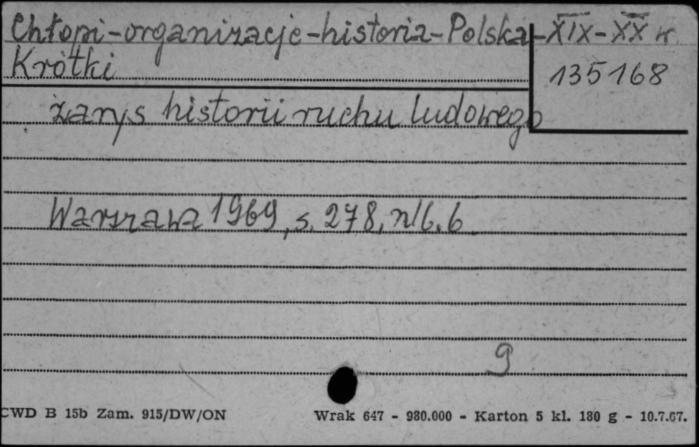 Chłopi-organizacje-historia-Polska-XIX-XX w
Krótki
135168
zarys historii ruchu ludowego
Warszawa 1969, s. 278, nlb. 6
9
CWD B 15b Zam. 915/DW/ON
Wrak 647 - 980.000 - Karton 5 kl. 180 g - 10.7.67.